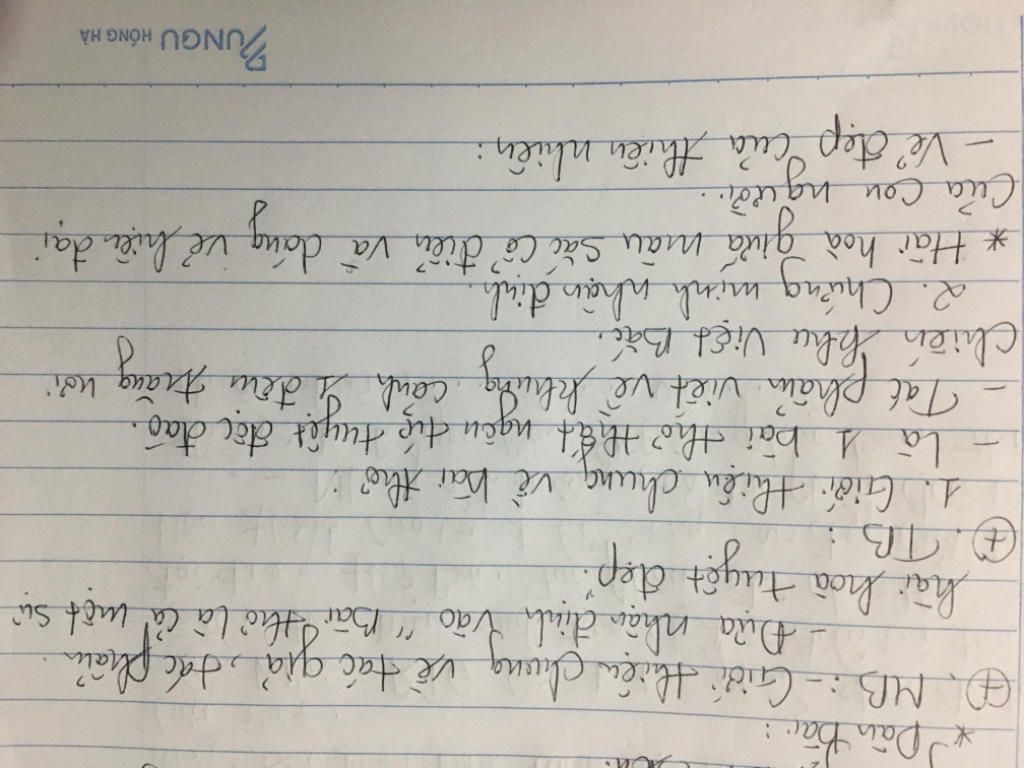 * Dàn bài:
+. MB: - Giới thiệu chung về tác giả, tác phẩm
- Đưa nhận định vào "Bài thơ là cả một sự
hài hoà tuyệt đẹp.
+. TB:
1. Giới thiệu chung về bài thơ:
- Là 1 bài thơ thất ngôn tứ tuyệt độc đáo.
- Tác phẩm viết về khung cảnh 1 đêm trăng nơi
Chiến khu Việt Bắc.
2. Chứng minh nhận định.
* Hài hoà giữa màu sắc cổ điển và dáng vẻ hiện đại
Của con người.
- Vẻ đẹp của thiên nhiên:
UNGU HỒNG HÀ